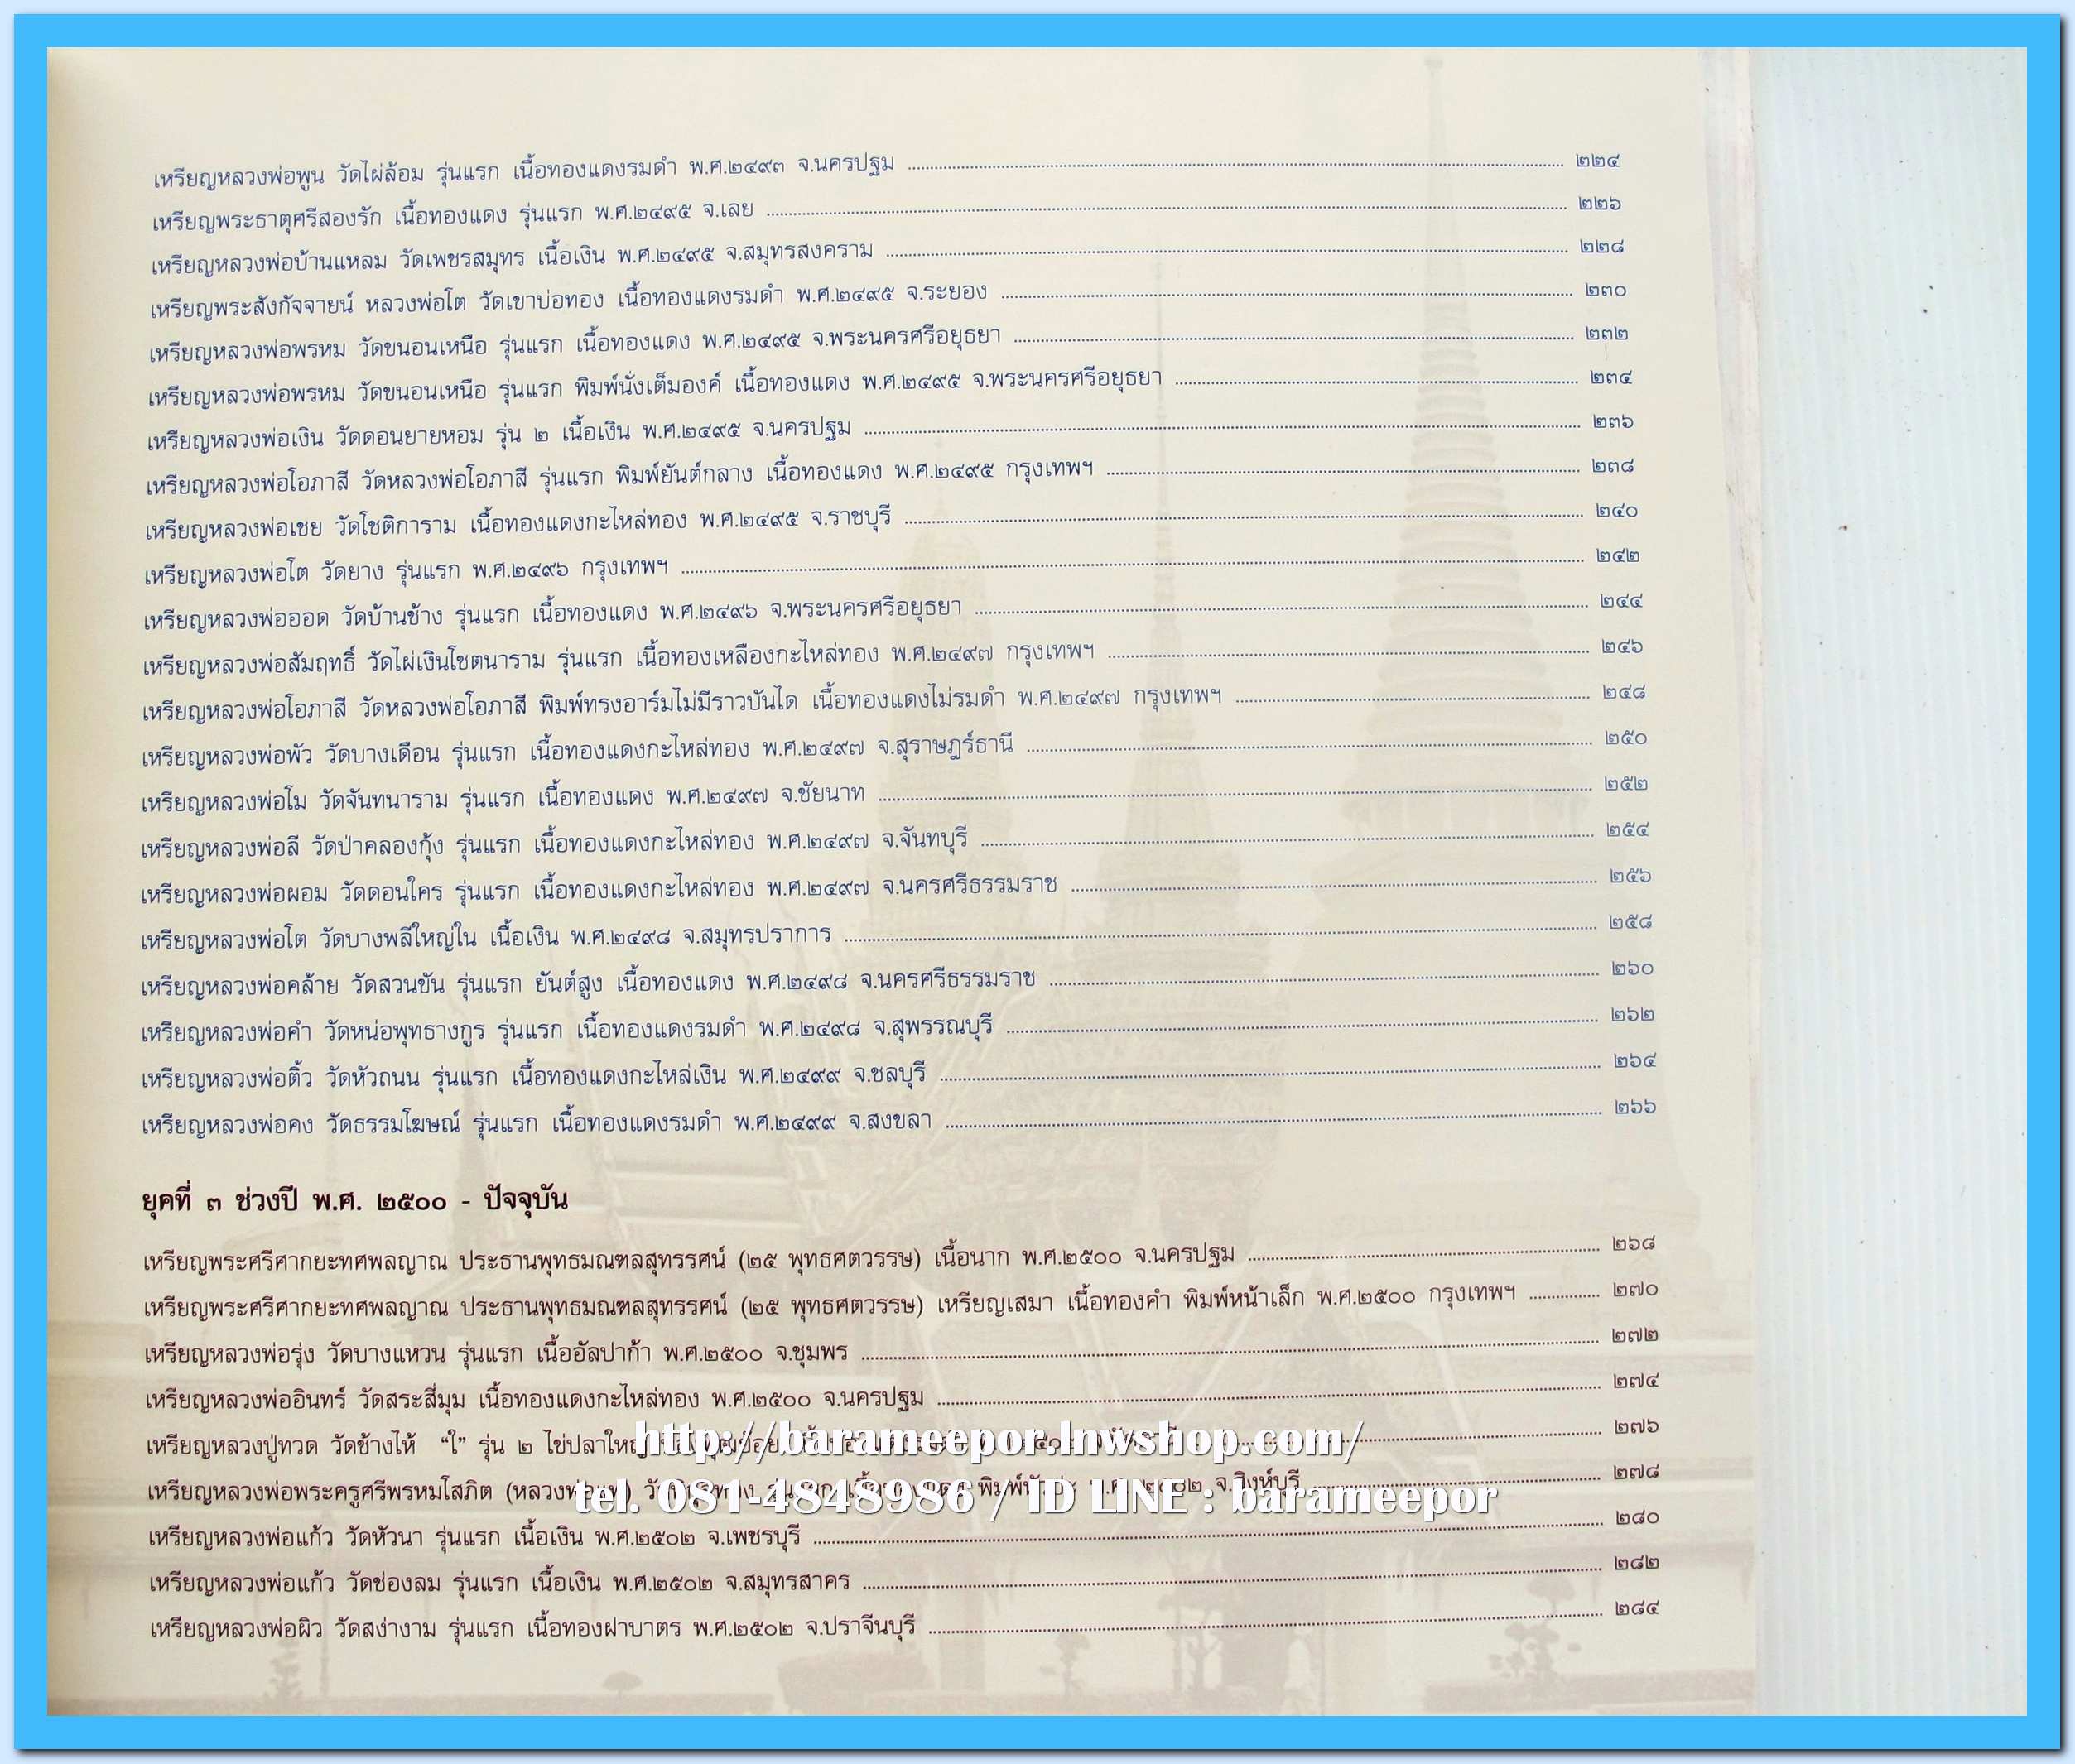 เหรียญหลวงพ่อพูน วัดไผ่ล้อม รุ่นแรก เนื้อทองแดงรมดำ พ.ศ.๒๔๙๓ จ.นครปฐม ๒๒๔
เหรียญพระธาตุศรีสองรัก เนื้อทองแดง รุ่นแรก พ.ศ.๒๔๙๕ จ.เลย ๒๒๖
เหรียญหลวงพ่อบ้านแหลม วัดเพชรสมุทร เนื้อเงิน พ.ศ.๒๔๙๕ จ.สมุทรสงคราม ๒๒๘
เหรียญพระสังกัจจายน์ หลวงพ่อโต วัดเขาบ่อทอง เนื้อทองแดงรมดำ พ.ศ.๒๔๙๕ จ.ระยอง ๒๓๐
เหรียญหลวงพ่อพรหม วัดขนอนเหนือ รุ่นแรก เนื้อทองแดง พ.ศ.๒๔๙๕ จ.พระนครศรีอยุธยา ๒๓๒
เหรียญหลวงพ่อพรหม วัดขนอนเหนือ รุ่นแรก พิมพ์นั่งเต็มองค์ เนื้อทองแดง พ.ศ.๒๔๙๕ จ.พระนครศรีอยุธยา ๒๓๔
เหรียญหลวงพ่อเงิน วัดดอนยายหอม รุ่น ๒ เนื้อเงิน พ.ศ.๒๔๙๕ จ.นครปฐม ๒๓๖
เหรียญหลวงพ่อโอภาสี วัดหลวงพ่อโอภาสี รุ่นแรก พิมพ์ยันต์กลาง เนื้อทองแดง พ.ศ.๒๔๙๕ กรุงเทพฯ ๒๓๘
เหรียญหลวงพ่อเชย วัดโชติการาม เนื้อทองแดงกะไหล่ทอง พ.ศ.๒๔๙๕ จ.ราชบุรี ๒๔๐
เหรียญหลวงพ่อโต วัดยาง รุ่นแรก พ.ศ.๒๔๙๖ กรุงเทพฯ ๒๔๒
เหรียญหลวงพ่อออด วัดบ้านช้าง รุ่นแรก เนื้อทองแดง พ.ศ.๒๔๙๖ จ.พระนครศรีอยุธยา ๒๔๔
เหรียญหลวงพ่อสัมฤทธิ์ วัดไผ่เงินโชตนาราม รุ่นแรก เนื้อทองเหลืองกะไหล่ทอง พ.ศ.๒๔๙๗ กรุงเทพฯ ๒๔๖
เหรียญหลวงพ่อโอภาสี วัดหลวงพ่อโอภาสี พิมพ์ทรงอาร์มไม่มีราวบันได เนื้อทองแดงไม่รมดำ พ.ศ.๒๔๙๗ กรุงเทพฯ ๒๔๘
เหรียญหลวงพ่อพัว วัดบางเดือน รุ่นแรก เนื้อทองแดงกะไหล่ทอง พ.ศ.๒๔๙๗ จ.สุราษฎร์ธานี ๒๕๐
เหรียญหลวงพ่อโม วัดจันทนาราม รุ่นแรก เนื้อทองแดง พ.ศ.๒๔๙๗ จ.ชัยนาท ๒๕๒
เหรียญหลวงพ่อลี วัดป่าคลองกุ้ง รุ่นแรก เนื้อทองแดงกะไหล่ทอง พ.ศ.๒๔๙๗ จ.จันทบุรี ๒๕๔
เหรียญหลวงพ่อผอม วัดดอนใคร รุ่นแรก เนื้อทองแดงกะไหล่ทอง พ.ศ.๒๔๙๗ จ.นครศรีธรรมราช ๒๕๖
เหรียญหลวงพ่อโต วัดบางพลีใหญ่ใน เนื้อเงิน พ.ศ.๒๔๙๘ จ.สมุทรปราการ ๒๕๘
เหรียญหลวงพ่อคล้าย วัดสวนขัน รุ่นแรก ยันต์สูง เนื้อทองแดง พ.ศ.๒๔๙๘ จ.นครศรีธรรมราช ๒๖๐
เหรียญหลวงพ่อคำ วัดหน่อพุทธางกูร รุ่นแรก เนื้อทองแดงรมดำ พ.ศ.๒๔๙๘ จ.สุพรรณบุรี ๒๖๒
เหรียญหลวงพ่อติ้ว วัดหัวถนน รุ่นแรก เนื้อทองแดงกะไหล่เงิน พ.ศ.๒๔๙๙ จ.ชลบุรี ๒๖๔
เหรียญหลวงพ่อคง วัดธรรมโฆษณ์ รุ่นแรก เนื้อทองแดงรมดำ พ.ศ.๒๔๙๙ จ.สงขลา ๒๖๖
ยุคที่ ๓ ช่วงปี พ.ศ. ๒๕๐๐ - ปัจจุบัน
เหรียญพระศรีศากยะทศพลญาณ ประธานพุทธมณฑลสุทรรศน์ (๒๕ พุทธศตวรรษ) เนื้อนาก พ.ศ.๒๕๐๐ จ.นครปฐม ๒๖๘
เหรียญพระศรีศากยะทศพลญาณ ประธานพุทธมณฑลสุทรรศน์ (๒๕ พุทธศตวรรษ) เหรียญเสมา เนื้อทองคำ พิมพ์หน้าเล็ก พ.ศ.๒๕๐๐ กรุงเทพฯ ๒๗๐
เหรียญหลวงพ่อรุ่ง วัดบางแหวน รุ่นแรก เนื้ออัลปาก้า พ.ศ.๒๕๐๐ จ.ชุมพร ๒๗๒
เหรียญหลวงพ่ออินทร์ วัดสระสี่มุม เนื้อทองแดงกะไหล่ทอง พ.ศ.๒๕๐๐ จ.นครปฐม ๒๗๔
เหรียญหลวงปู่ทวด วัดช้างไห้ “ใ” รุ่น ๒ ไข่ปลาใหญ่ ๒๗๖
http://barameepor.lnwshop.com/
เหรียญหลวงพ่อพระครูศรีพรหมโสภิต จ.สิงห์บุรี ๒๗๘
tel. 081-4848986 / ID LINE : barameepor
เหรียญหลวงพ่อแก้ว วัดหัวนา รุ่นแรก เนื้อเงิน พ.ศ.๒๕๐๒ จ.เพชรบุรี ๒๘๐
เหรียญหลวงพ่อแก้ว วัดช่องลม รุ่นแรก เนื้อเงิน พ.ศ.๒๕๐๒ จ.สมุทรสาคร ๒๘๒
เหรียญหลวงพ่อผิว วัดสง่างาม รุ่นแรก เนื้อทองฝาบาตร พ.ศ.๒๕๐๒ จ.ปราจีนบุรี ๒๘๔